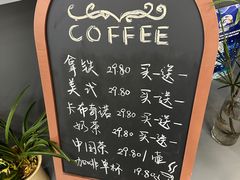 COFFEE
拿铁 29.80 买一送一
美式 29.80 买一送一
卡布奇诺 29.80 买一送一
奶茶 29.80 买一送一
中国茶 29.80/壶
咖啡单杯 19.80